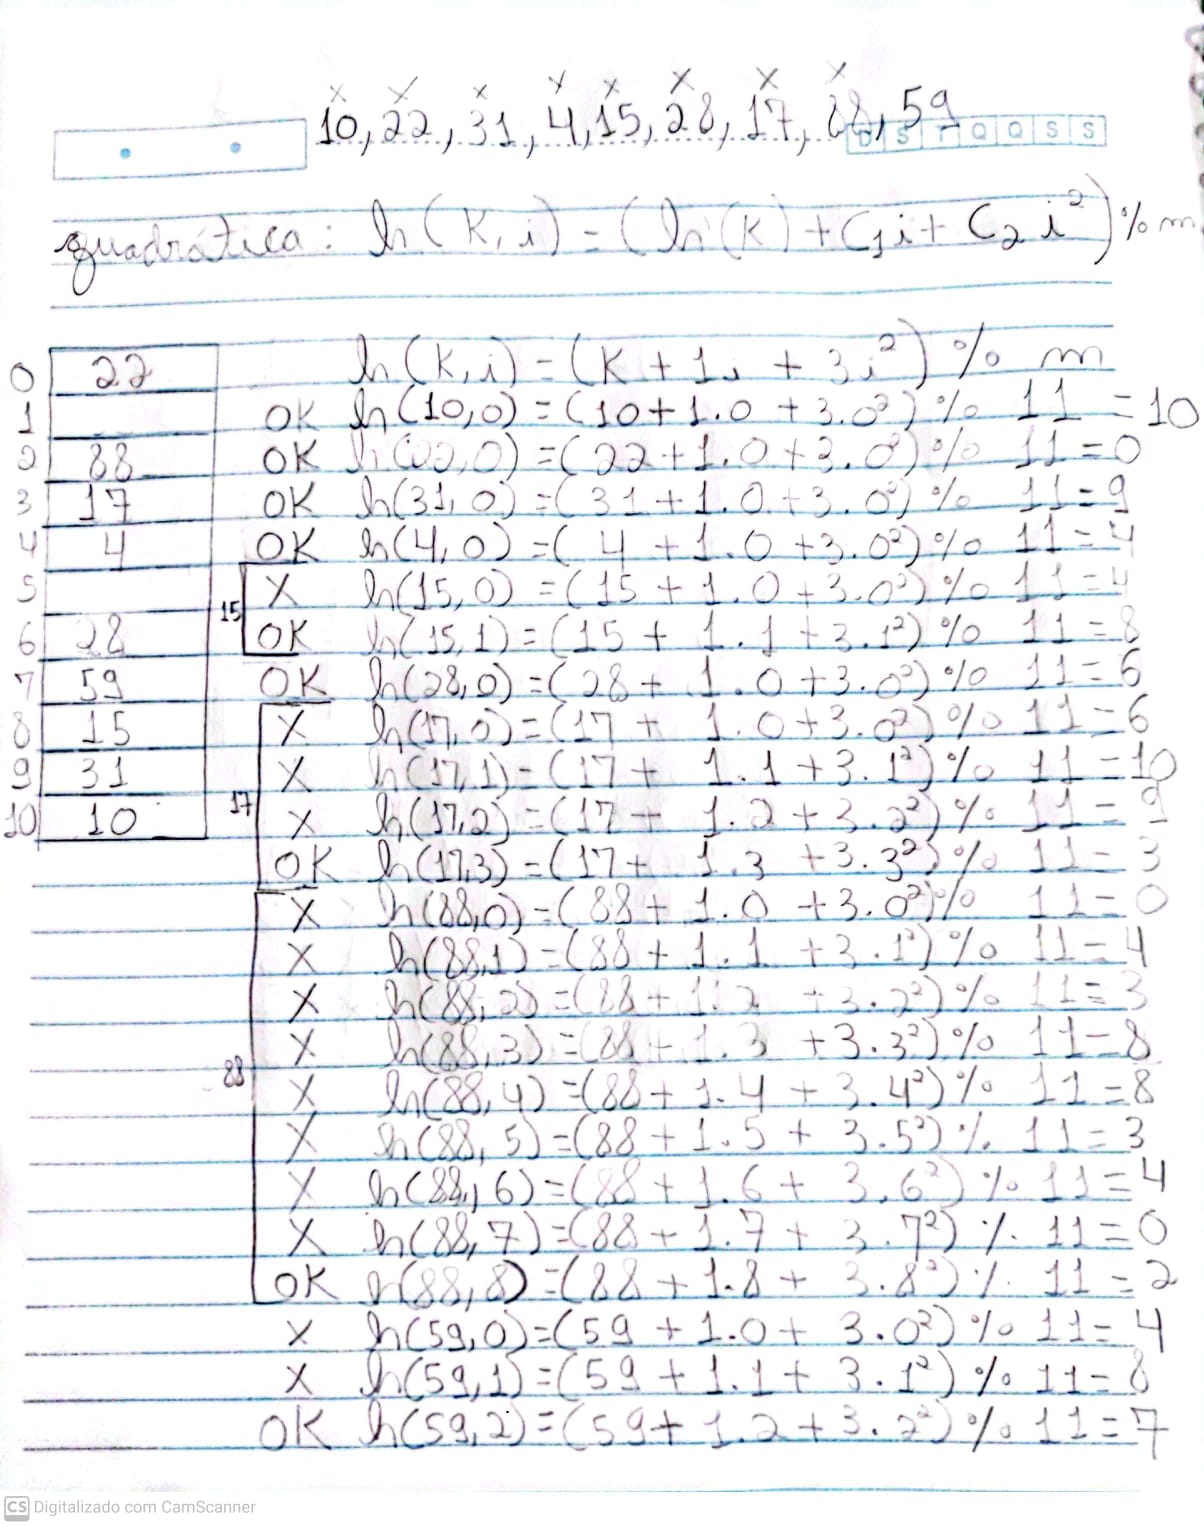 x x x x x x x x
10, 22, 31, 4, 15, 28, 17, 88, 59
D S T Q Q S S
quadrática: h(K,i) = (h'(K) + C1i + C2i²) % m
h(K,i) = (K + 1i + 3i²) % m
0 22
1 OK h(10,0) = (10+1.0 +3.0²) % 11 = 10
2 88 OK h(22,0) = (22+1.0+3.0²) % 11 = 0
3 17 OK h(31,0) = (31+1.0+3.0²) % 11 = 9
4 4 OK h(4,0) = (4 +1.0 +3.0²) % 11 = 4
5 X h(15,0) = (15 + 1.0 +3.0²) % 11 = 4
15
6 28 OK h(15,1) = (15 + 1.1 +3.1²) % 11 = 8
7 59 OK h(28,0) = (28 + 1.0+3.0²) % 11 = 6
8 15 X h(17,0) = (17 + 1.0+3.0²) % 11 = 6
9 31 X h(17,1) = (17 + 1.1 +3.1²) % 11 = 10
17
10 10 X h(17,2) = (17 + 1.2 +3.2²) % 11 = 9
OK h(17,3) = (17 + 1.3 +3.3²) % 11 = 3
X h(88,0) = (88 + 1.0 +3.0²) % 11 = 0
X h(88,1) = (88 + 1.1 +3.1²) % 11 = 4
X h(88,2) = (88 + 1.2 +3.2²) % 11 = 3
X h(88,3) = (88 + 1.3 +3.3²) % 11 = 8
88
X h(88,4) = (88 + 1.4 + 3.4²) % 11 = 8
X h(88,5) = (88 + 1.5 + 3.5²) % 11 = 3
X h(88,6) = (88 + 1.6 + 3.6²) % 11 = 4
X h(88,7) = (88 + 1.7 + 3.7²) % 11 = 0
OK h(88,8) = (88 + 1.8 + 3.8²) % 11 = 2
X h(59,0) = (59 + 1.0 + 3.0²) % 11 = 4
X h(59,1) = (59 + 1.1 + 3.1²) % 11 = 8
OK h(59,2) = (59 + 1.2 + 3.2²) % 11 = 7
CS Digitalizado com CamScanner